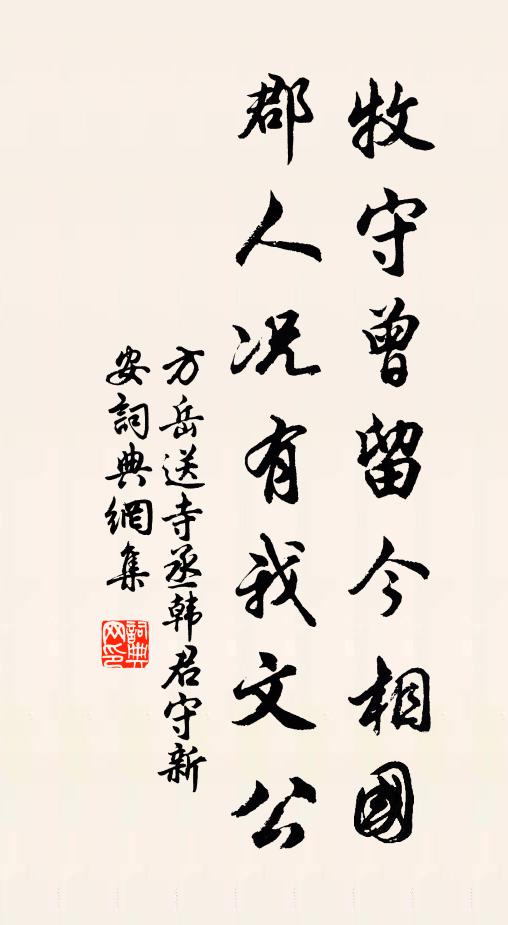 牧守曾留今相國
郡人况有我文公
方岳送寺丞韩君守新
安詞典網集
詞典网印